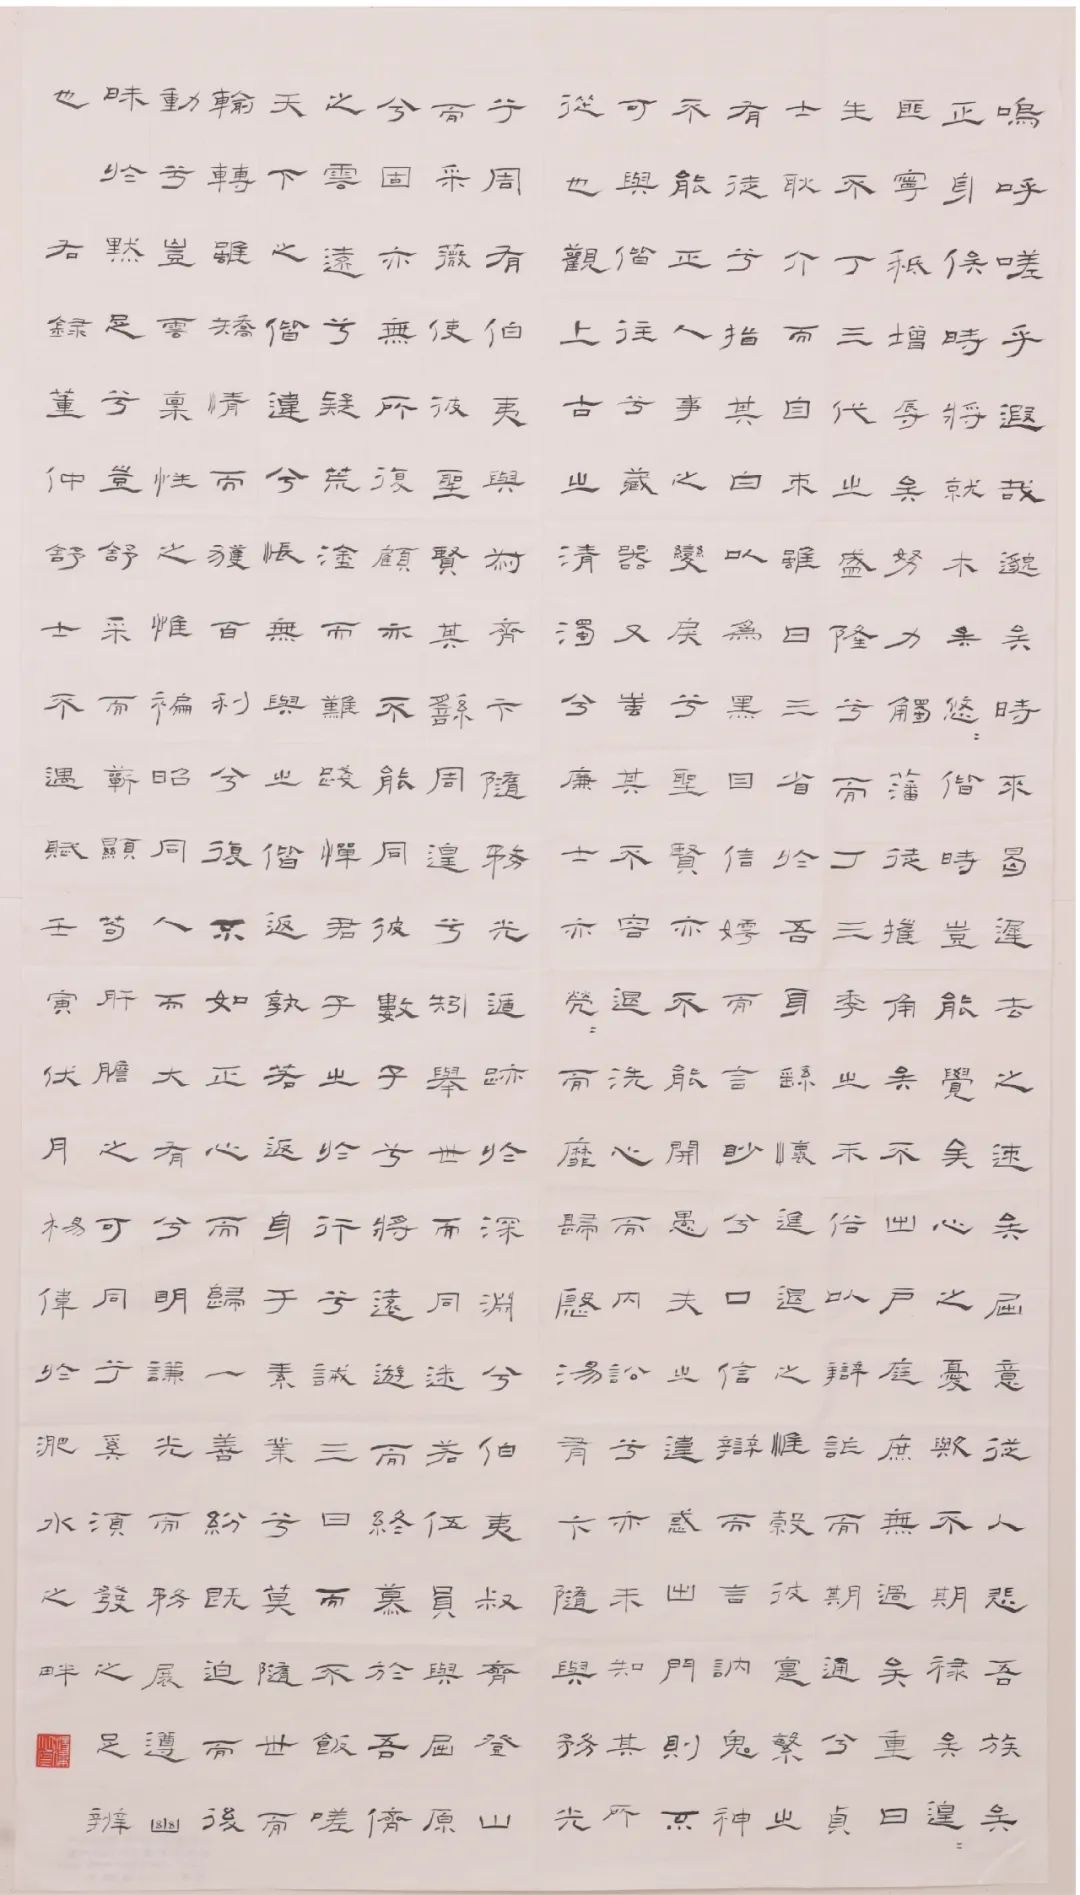 嗚呼嗟乎遐哉邈矣時來曷遲去之速矣屈意從人悲吾族矣
正身俟時將就木矣悠=偕時豈能覺矣心之憂歟不期祿矣遑=
匪寧秖增辱矣努力觸藩徒摧角矣不出戶庭庶無過矣重曰
生不丁三代之盛隆兮而丁三季之末俗以辯詐而期通兮貞
士耿介而自束雖日三省於吾身繇懷進退之惟榖彼寔繁之
有徒兮指其白以為黑目信嫮而言眇兮口信辯而言訥鬼神
不能正人事之變戾兮聖賢亦不能開愚夫之違惑出門則不
可與偕往兮藏器又蚩其不容退洗心而內訟兮亦未知其所
從也觀上古之清濁兮廉士亦煢=而靡歸殷湯有卞隨與務光
兮周有伯夷與叔齊卞隨務光遁跡於深淵兮伯夷叔齊登山
而采薇使彼聖賢其繇周遑兮矧舉世而同迷若伍員與屈原
兮固亦無所復顧亦不能同彼數子兮將遠遊而終慕於吾儕
之雲遠兮疑荒塗而難踐憚君子之於行兮誡三日而不飯嗟
天下之偕違兮悵無與之偕返孰若返身于素業兮莫隨世而
輪轉雖矯情而獲百利兮復不如正心而歸一善紛既迫而後
動兮豈雲稟性之惟褊昭同人而大有兮明謙光而務展遵幽
昧於默足兮豈舒采而蘄顯苟肝膽之可同兮奚須發之足辨
也 右録董仲舒士不遇賦壬寅伏月楊偉於淝水之畔